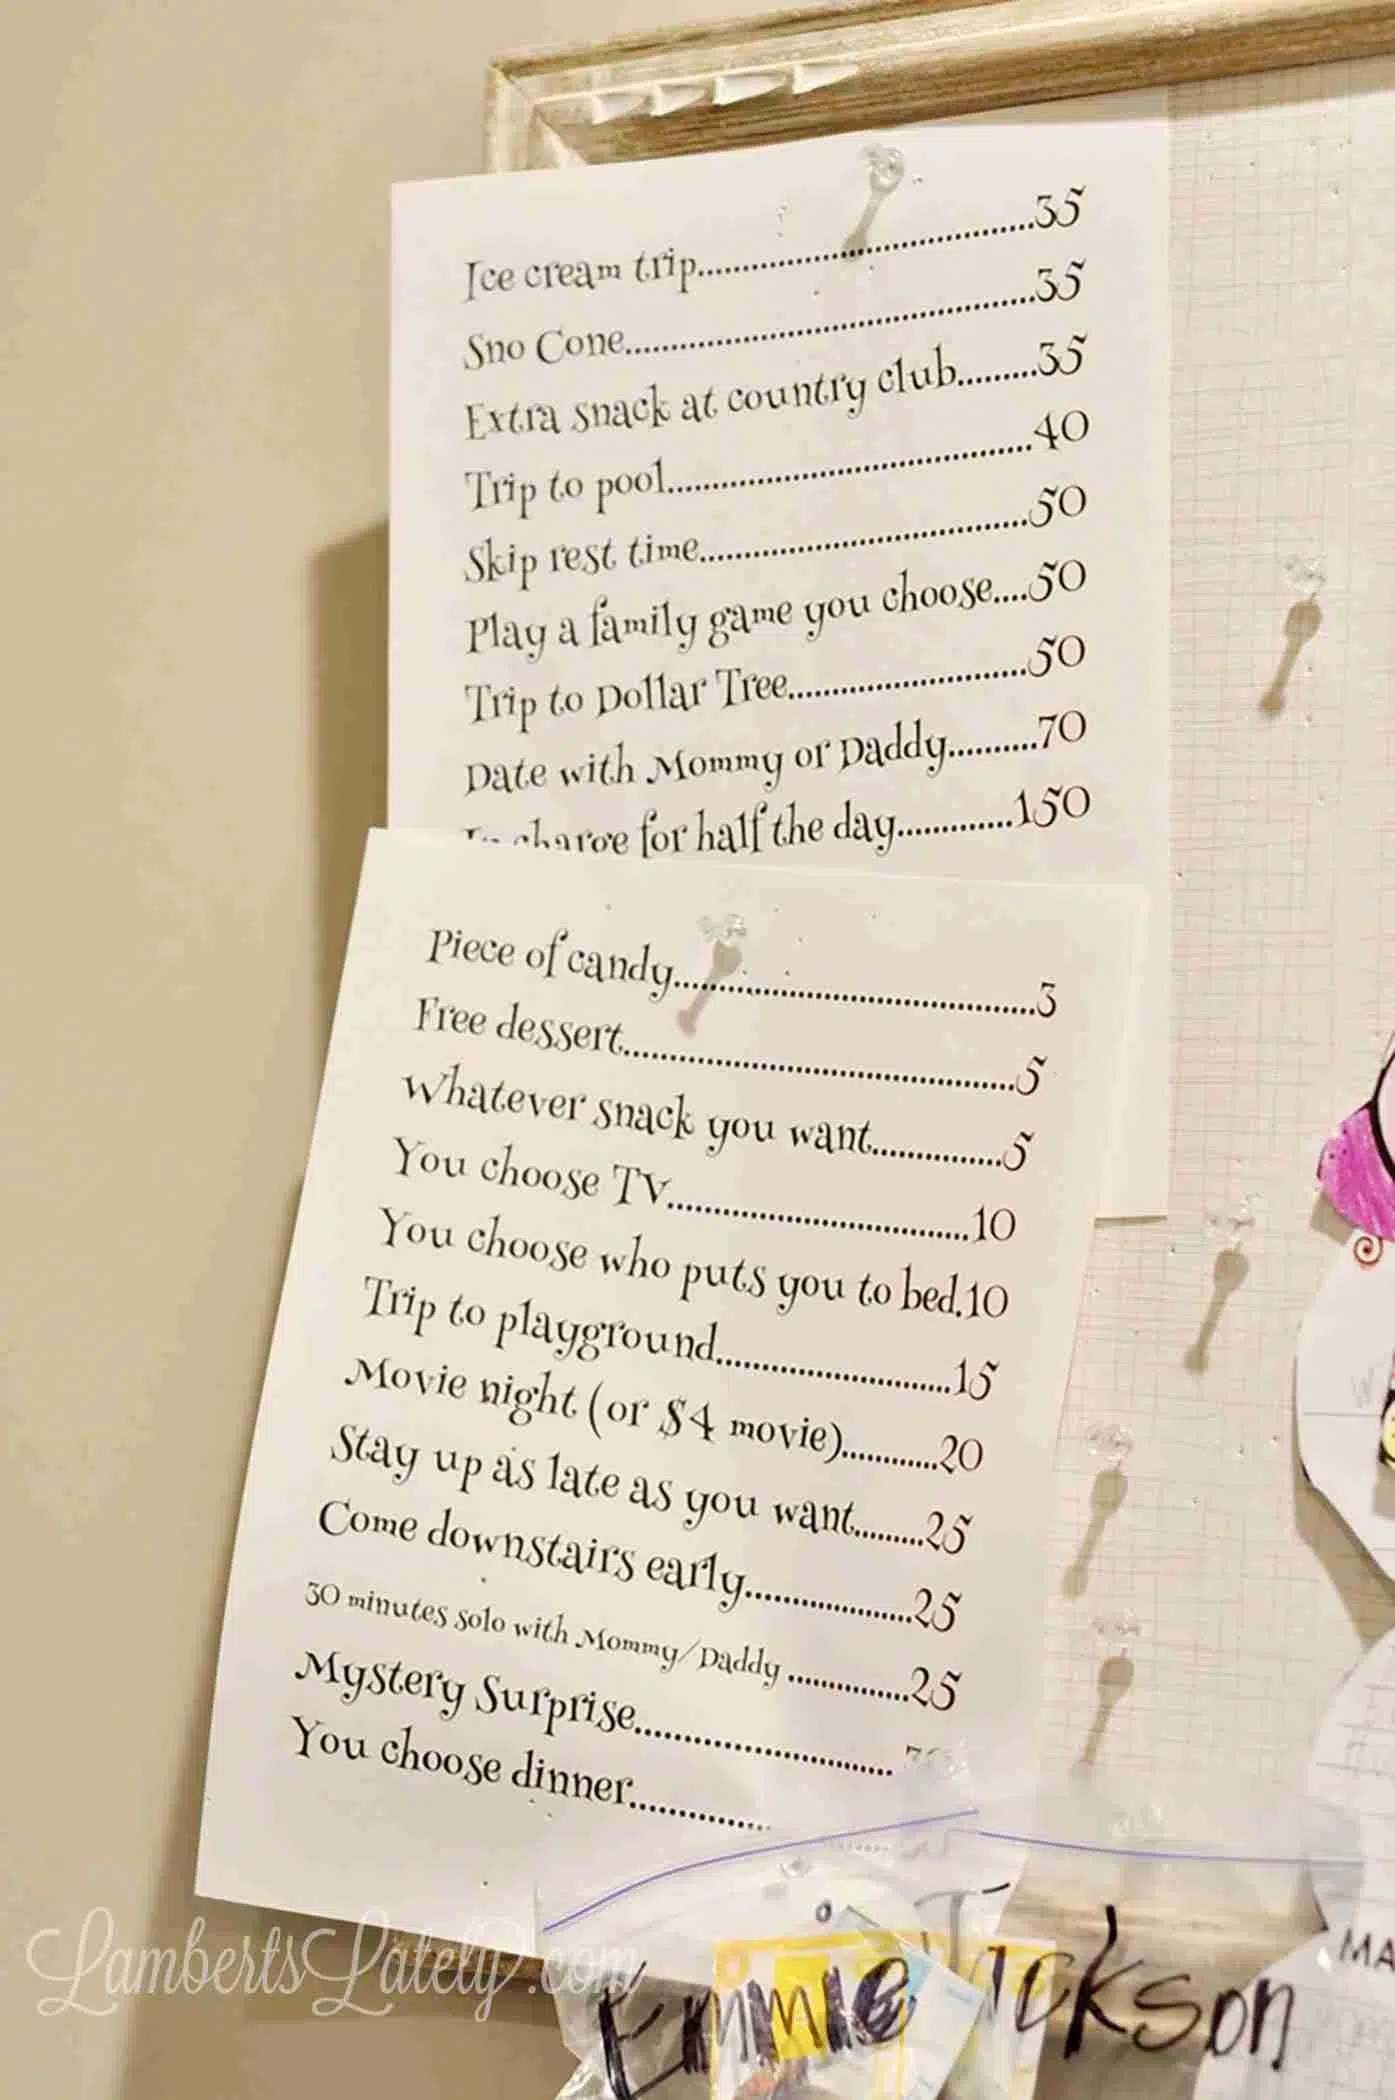 Ice cream trip..............................................35
Sno Cone........................................................35
Extra snack at country club.........35
Trip to pool..................................................40
Skip rest time.............................................50
Play a family game you choose....50
Trip to Dollar Tree................................50
Date with Mommy or Daddy..........70
In charge for half the day.............150
Piece of candy..............................................3
Free dessert..................................................5
Whatever snack you want...............5
You choose TV.....................................10
You choose who puts you to bed.10
Trip to playground.............................15
Movie night (or $4 movie)...........20
Stay up as late as you want........25
Come downstairs early....................25
30 minutes solo with Mommy/Daddy ..............25
Mystery Surprise................................
You choose dinner.................
Emmie Jackson
MA
LambertsLately.com